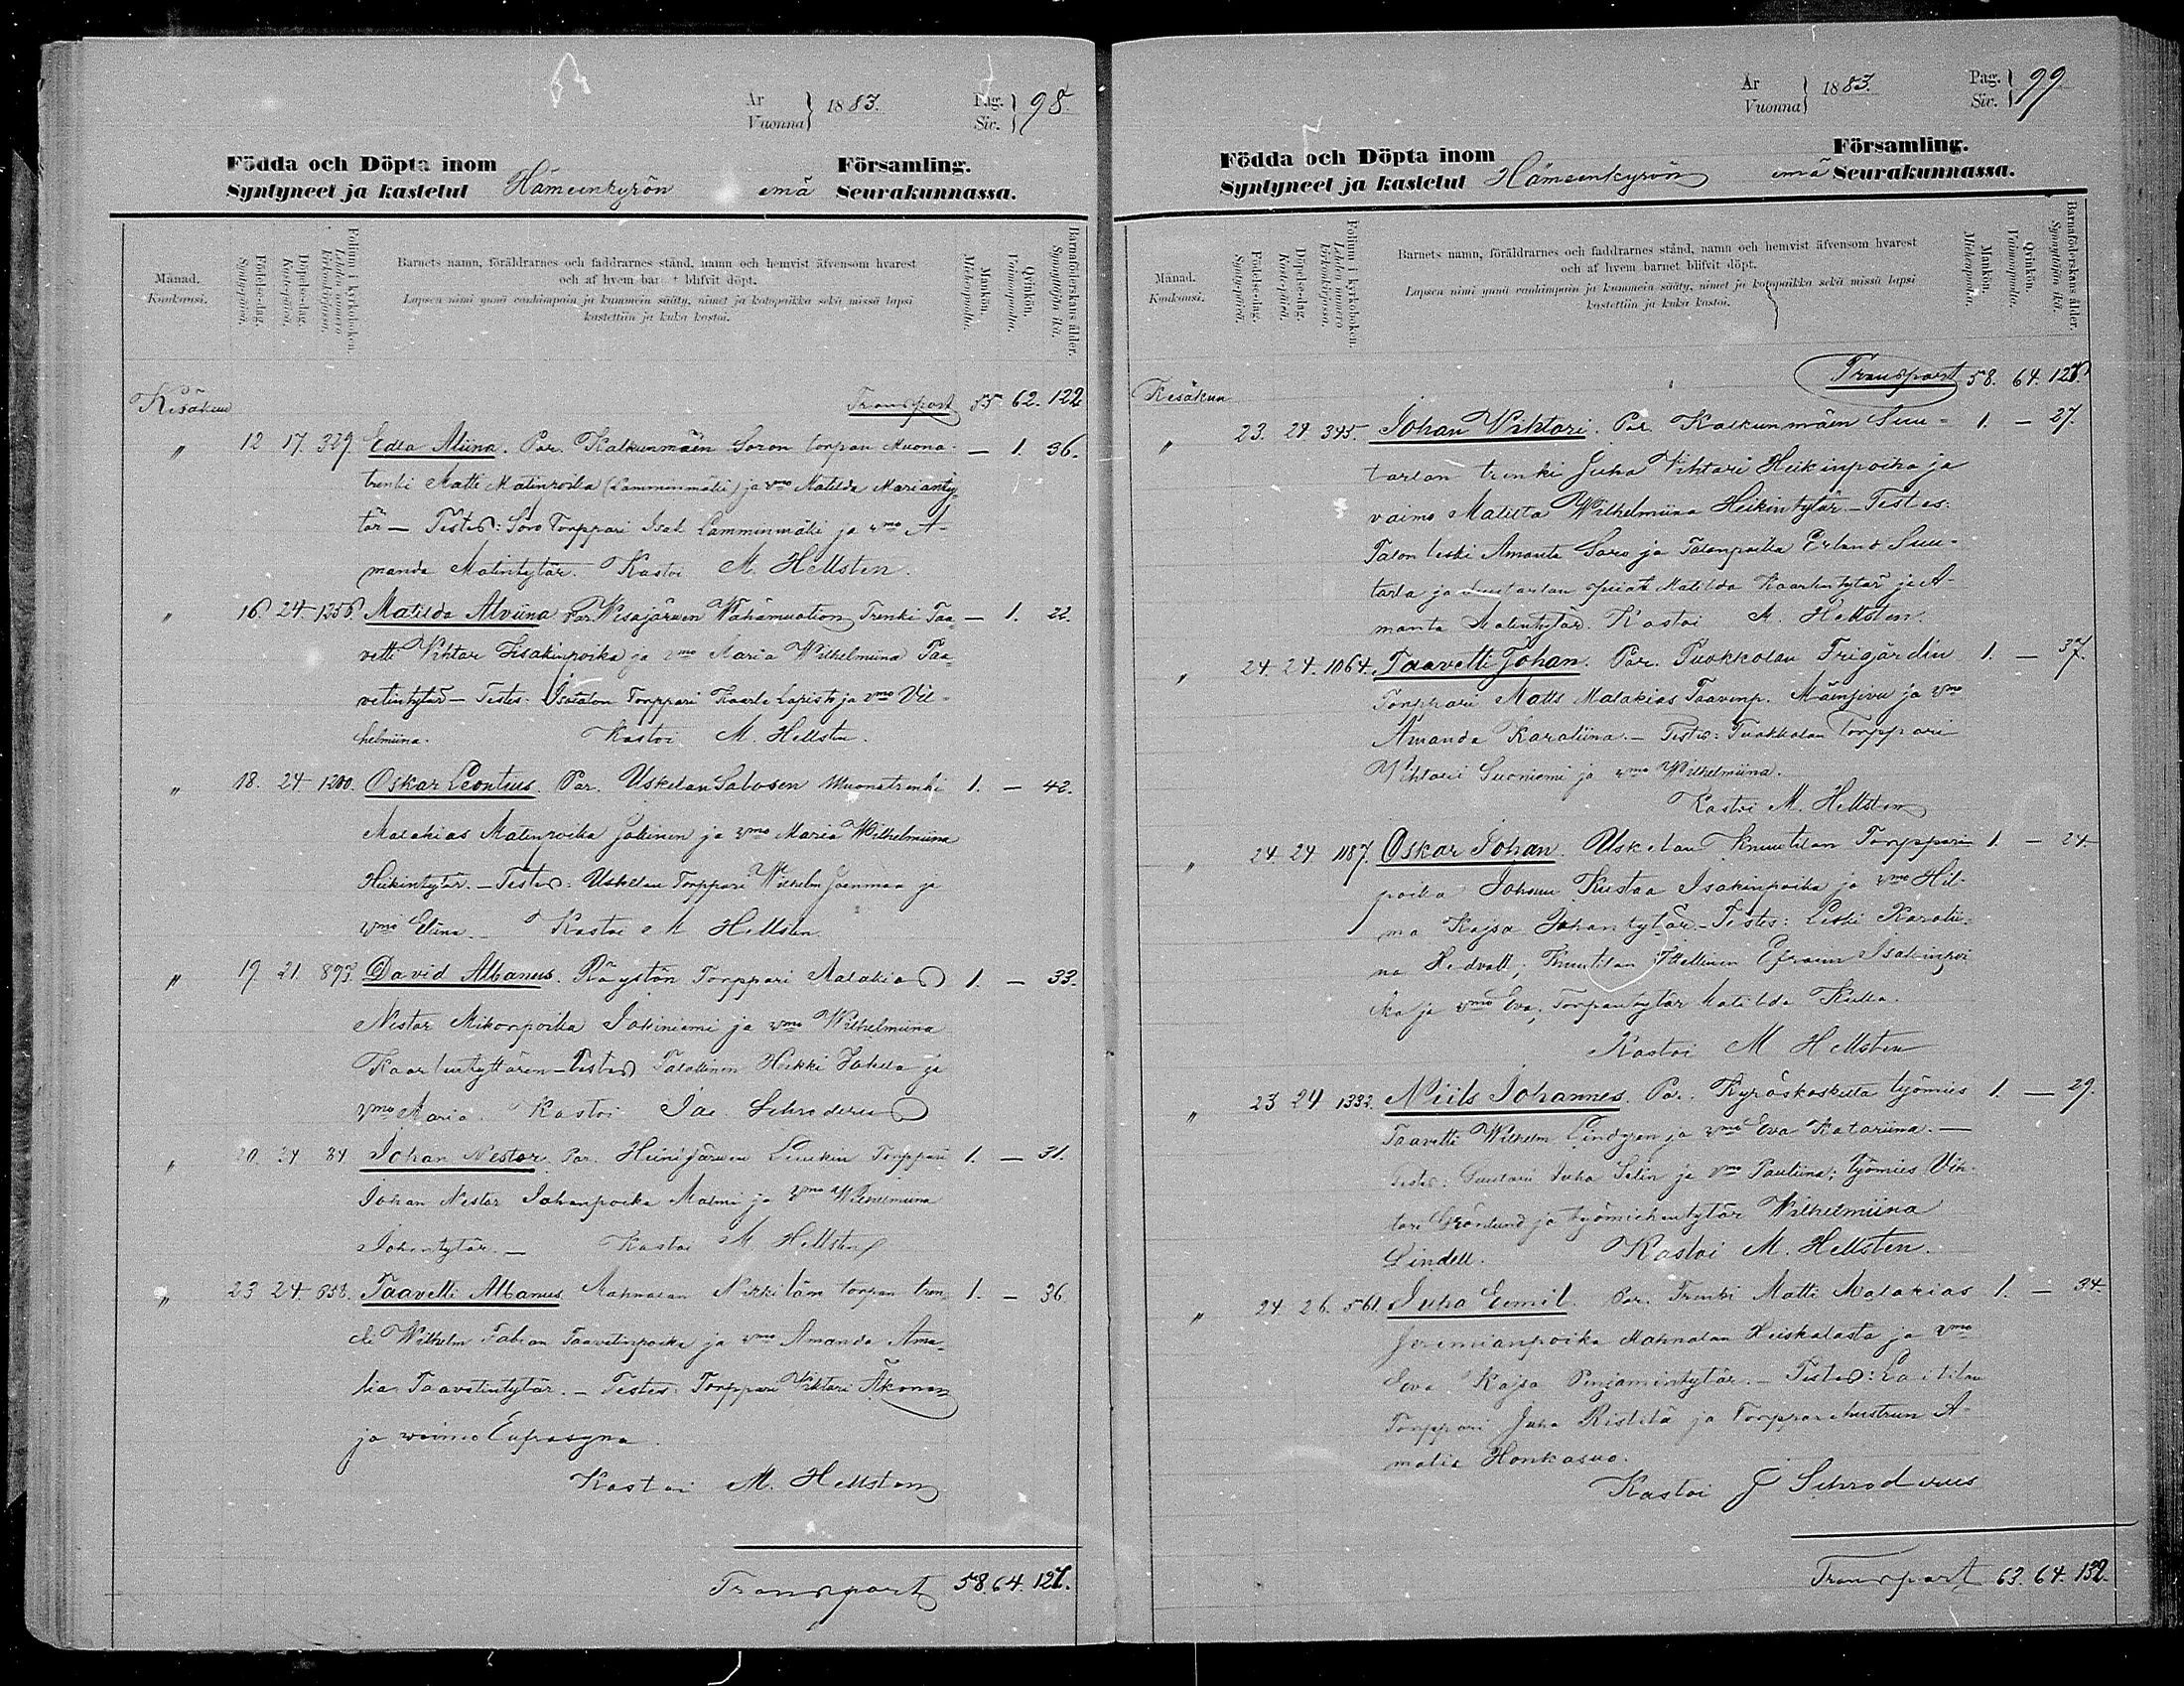 År
Vuonna } 1883.
Pag.
Siv. } 98.
Födda och Döpta inom
Syntyneet ja kastetut Hämeenkyrön emä Församling.
Seurakunnassa.
Månad.
Kuukausi.
Födelse-dag.
Syntypäivä.
Döpelse-dag.
Kastepäivä.
Folium i kyrkoboken.
Lehden numero kirkonkirjassa.
Barnets namn, föräldrarnes och faddrarnes stånd, namn och hemvist äfvensom hvarest
och af hvem barnet blifvit döpt.
Lapsen nimi ynnä vanhimpain ja kummein sääty, nimet ja kotopaikka sekä missä lapsi
kastettiin ja kuka kastoi.
Mankön.
Miehenpuolia.
Qvinkön.
Vaimonpuolia.
Barnaföderskans ålder.
Synnyttäjän ikä.
Kesäkuu Transport 55 62. 122
" 12 17. 329. Edla Aliina. Par. Kalkunmäen Soron torpan Muona- — 1. 36.
trenki Matti Matinpoika (Lamminmäki) ja vmo Matilda Marianty-
tär — Testes: Soro Torppari Isak Lamminmäki ja vmo A-
manda Matintytär. Kastoi M. Hellsten.
" 16 24 1256 Matilda Alviina Par. Wesajärven Wähämuation Trenki Taa- — 1. 22.
vetti Vihtor Iisakinpoika ja vmo Maria Wilhelmiina Taa-
vetintytär — Testes: Isotalon Torppari Kaarle Lapisto ja vmo Vil-
helmiina. Kastoi M. Hellsten.
" 18. 24 1200. Oskar Leontius. Par. Uskelan Sabosen Muonatrenki 1. — 42.
Malakias Matinpoika Jokinen ja vmo Maria Wilhelmiina
Heikintytär. — Testes: Uskelan Torppari Wilhelm Joenmaa ja
vmo Elina. — Kastoi M Hellsten
" 19. 21. 897. David Albanus. Röystön Torppari Malakias 1. — 33.
Nestor Mikonpoika Jokiniemi ja vmo Wilhelmiina
Kaarlentyttären — Testes Talollinen Heikki Jokela ja
vmo Maria. Kastoi Jac. Schroderus
" 20. 24 84 Johan Nestor. Par. Heinijärven Liukin Torppari 1. — 31.
Johan Nestor Johanpoika Malmi ja vmo Wilhelmiina
Johantytär. — Kastoi M. Hellsten
" 23 24. 658. Taavetti Albanus Mahnalan Nikkilän torpan tren- 1. — 36
ki Wilhelm Fabian Taavetinpoika ja vmo Amanda Ama-
lia Taavetintytär. — Testes: Torppari Vihtori Äkönen
ja waimo Eufrosyna.
Kastoi M. Hellsten
Transport 58. 64. 127.
År
Vuonna } 1883.
Pag.
Siv. } 99
Födda och Döpta inom
Syntyneet ja kastetut Hämeenkyrön emä Församling.
Seurakunnassa.
Månad.
Kuukausi.
Födelse-dag.
Syntypäivä.
Döpelse-dag.
Kastepäivä.
Folium i kyrkoboken.
Lehden numero kirkonkirjassa.
Barnets namn, föräldrarnes och faddrarnes stånd, namn och hemvist äfvensom hvarest
och af hvem barnet blifvit döpt.
Lapsen nimi ynnä vanhimpain ja kummein sääty, nimet ja kotopaikka sekä missä lapsi
kastettiin ja kuka kastoi.
Mankön.
Miehenpuolia.
Qvinkön.
Vaimonpuolia.
Barnaföderskans ålder.
Synnyttäjän ikä.
Transport 58. 64. 127.
Kesäkuu
" 23. 24 345. Johan Vihtori. Par. Kalkunmäen Suu- 1. — 27.
tarlan trenki Juha Vihtari Heikinpoika ja
vaimo Matilta Wilhelmiina Heikintytär. — Testes:
Talon leski Amanta Soro ja Talonpoika Erland Suu-
tarla ja Suutarlan piiat Matilda Kaarlentytär ja A-
manta Matintytär. Kastoi M. Hellsten.
" 24. 24. 1064. Taavetti Johan. Par. Tuokkolan Frigårdin 1. — 37.
Torppari Matts Malakias Taavinp. Mäensivu ja vmo
Amanda Karoliina. — Testes: Tuokkolan Torppari
Vihtori Suoniemi ja vmo Wilhelmiina.
Kastoi M. Hellsten
" 24 24 1187. Oskar Johan. Uskelan Knuutilan Torppari 1. — 24
poika Johan Kustaa Isakinpoika ja vmo Hil-
ma Kajsa Johantytär — Testes: Leski Karolii-
na Hedvall, Knuutilan Itsellinen Efraim Isakinpoi
ka ja vmo Eva, Torpantytär Matilda Kulla.
Kastoi M Hellsten
" 23 24 1332. Niils Johannes. Par. Kyröskoskelta työmies 1. — 29.
Taavetti Wilhelm Lindgren ja vmo Eva Katariina. —
Testes: Suutari Juha Selin ja vmo Pauliina; työmies Vih-
tori Grönlund ja työmiehentytär Wilhelmiina
Lindell. Kastoi M. Hellsten.
" 24 26. 561. Juha Eemil. Par. Trenki Matti Malakias 1. — 34.
Jeremianpoika Mahnalan Heiskalasta ja vmo
Eva Kajsa Penjamintytär. — Testes: Laitilan
Torppari Juha Ristilä ja Torpparinhustrun A-
malia Honkasuo.
Kastoi J Schroderus
Transport 63. 64. 132.